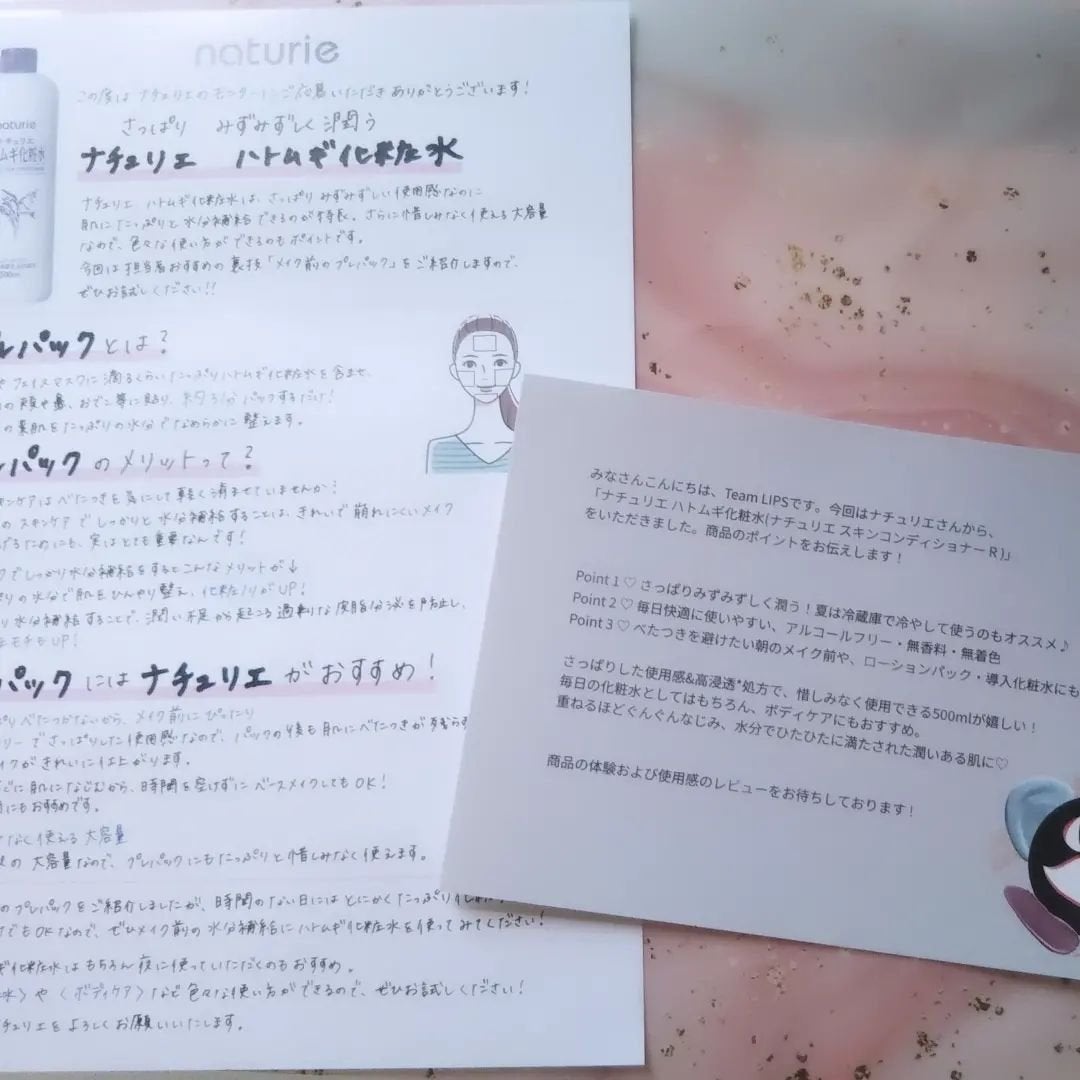 naturie
この度はナチュリエのモニターにご応募いただきありがとうございます!
さっぱり みずみずしく潤う
ナチュリエ ハトムギ化粧水
naturie
ナチュリエ ハトムギ化粧水は、さっぱりみずみずしい使用感なのに
肌にたっぷりと水分補給できるのが特長。さらに惜しみなく使える大容量
なので、色々な使い方ができるのもポイントです。
今回は担当者おすすめの裏技「メイク前のプレパック」をご紹介しますので、
ぜひお試しください!!
レパックとは?
やフェイスマスクに滴るくらいたっぷりハトムギ化粧水を含ませ、
の頬や鼻、おでこ等に貼り、約3分パックするだけ!
の素肌をたっぷりの水分でなめらかに整えます。
パックのメリットって?
キンケアはべたつきを気にして軽く済ませていませんか?
のスキンケアでしっかりと水分補給することは、きれいで崩れにくいメイク
げるためにも、実はとても重要なんです!
クでしっかり水分補給をするとこんなメリットが↓
りの水分で肌をひんやり整え、化粧ノリがUP!
り水分補給することで、潤い不足から起こる過剰な皮脂分泌を防止し、
モチもUP!
パックにはナチュリエがおすすめ!
ぱりべたつかないから、メイク前にぴったり
リーでさっぱりした使用感なので、パックの後も肌にべたつきが残らず
イクがきれいに仕上がります。
ぐに肌になじむから、時間を空けずにベースメイクしてもOK!
にもおすすめです。
なく使える大容量
の大容量なので、プレパックにもたっぷりと惜しみなく使えます。
のプレパックをご紹介しましたが、時間のない日にはとにかくたっぷり化粧
でもOKなので、ぜひメイク前の水分補給にハトムギ化粧水を使ってみてください!
ギ化粧水はもちろん夜に使っていただくのもおすすめ。
水〉や〈ボディケア〉など色々な使い方ができるので、ぜひお試しください!
チュリエをよろしくお願いいたします。
みなさんこんにちは、Team LIPSです。今回はナチュリエさんから、
「ナチュリエ ハトムギ化粧水(ナチュリエ スキンコンディショナー R )」
をいただきました。商品のポイントをお伝えします!
Point 1 ♡ さっぱりみずみずしく潤う!夏は冷蔵庫で冷やして使うのもオススメ♪
Point 2 ♡ 毎日快適に使いやすい、アルコールフリー・無香料・無着色
Point 3 ♡ べたつきを避けたい朝のメイク前や、ローションパック・導入化粧水にも
さっぱりした使用感&高浸透*処方で、惜しみなく使用できる500mlが嬉しい!
毎日の化粧水としてはもちろん、ボディケアにもおすすめ。
重ねるほどぐんぐんなじみ、水分でひたひたに満たされた潤いある肌に♡
商品の体験および使用感のレビューをお待ちしております!